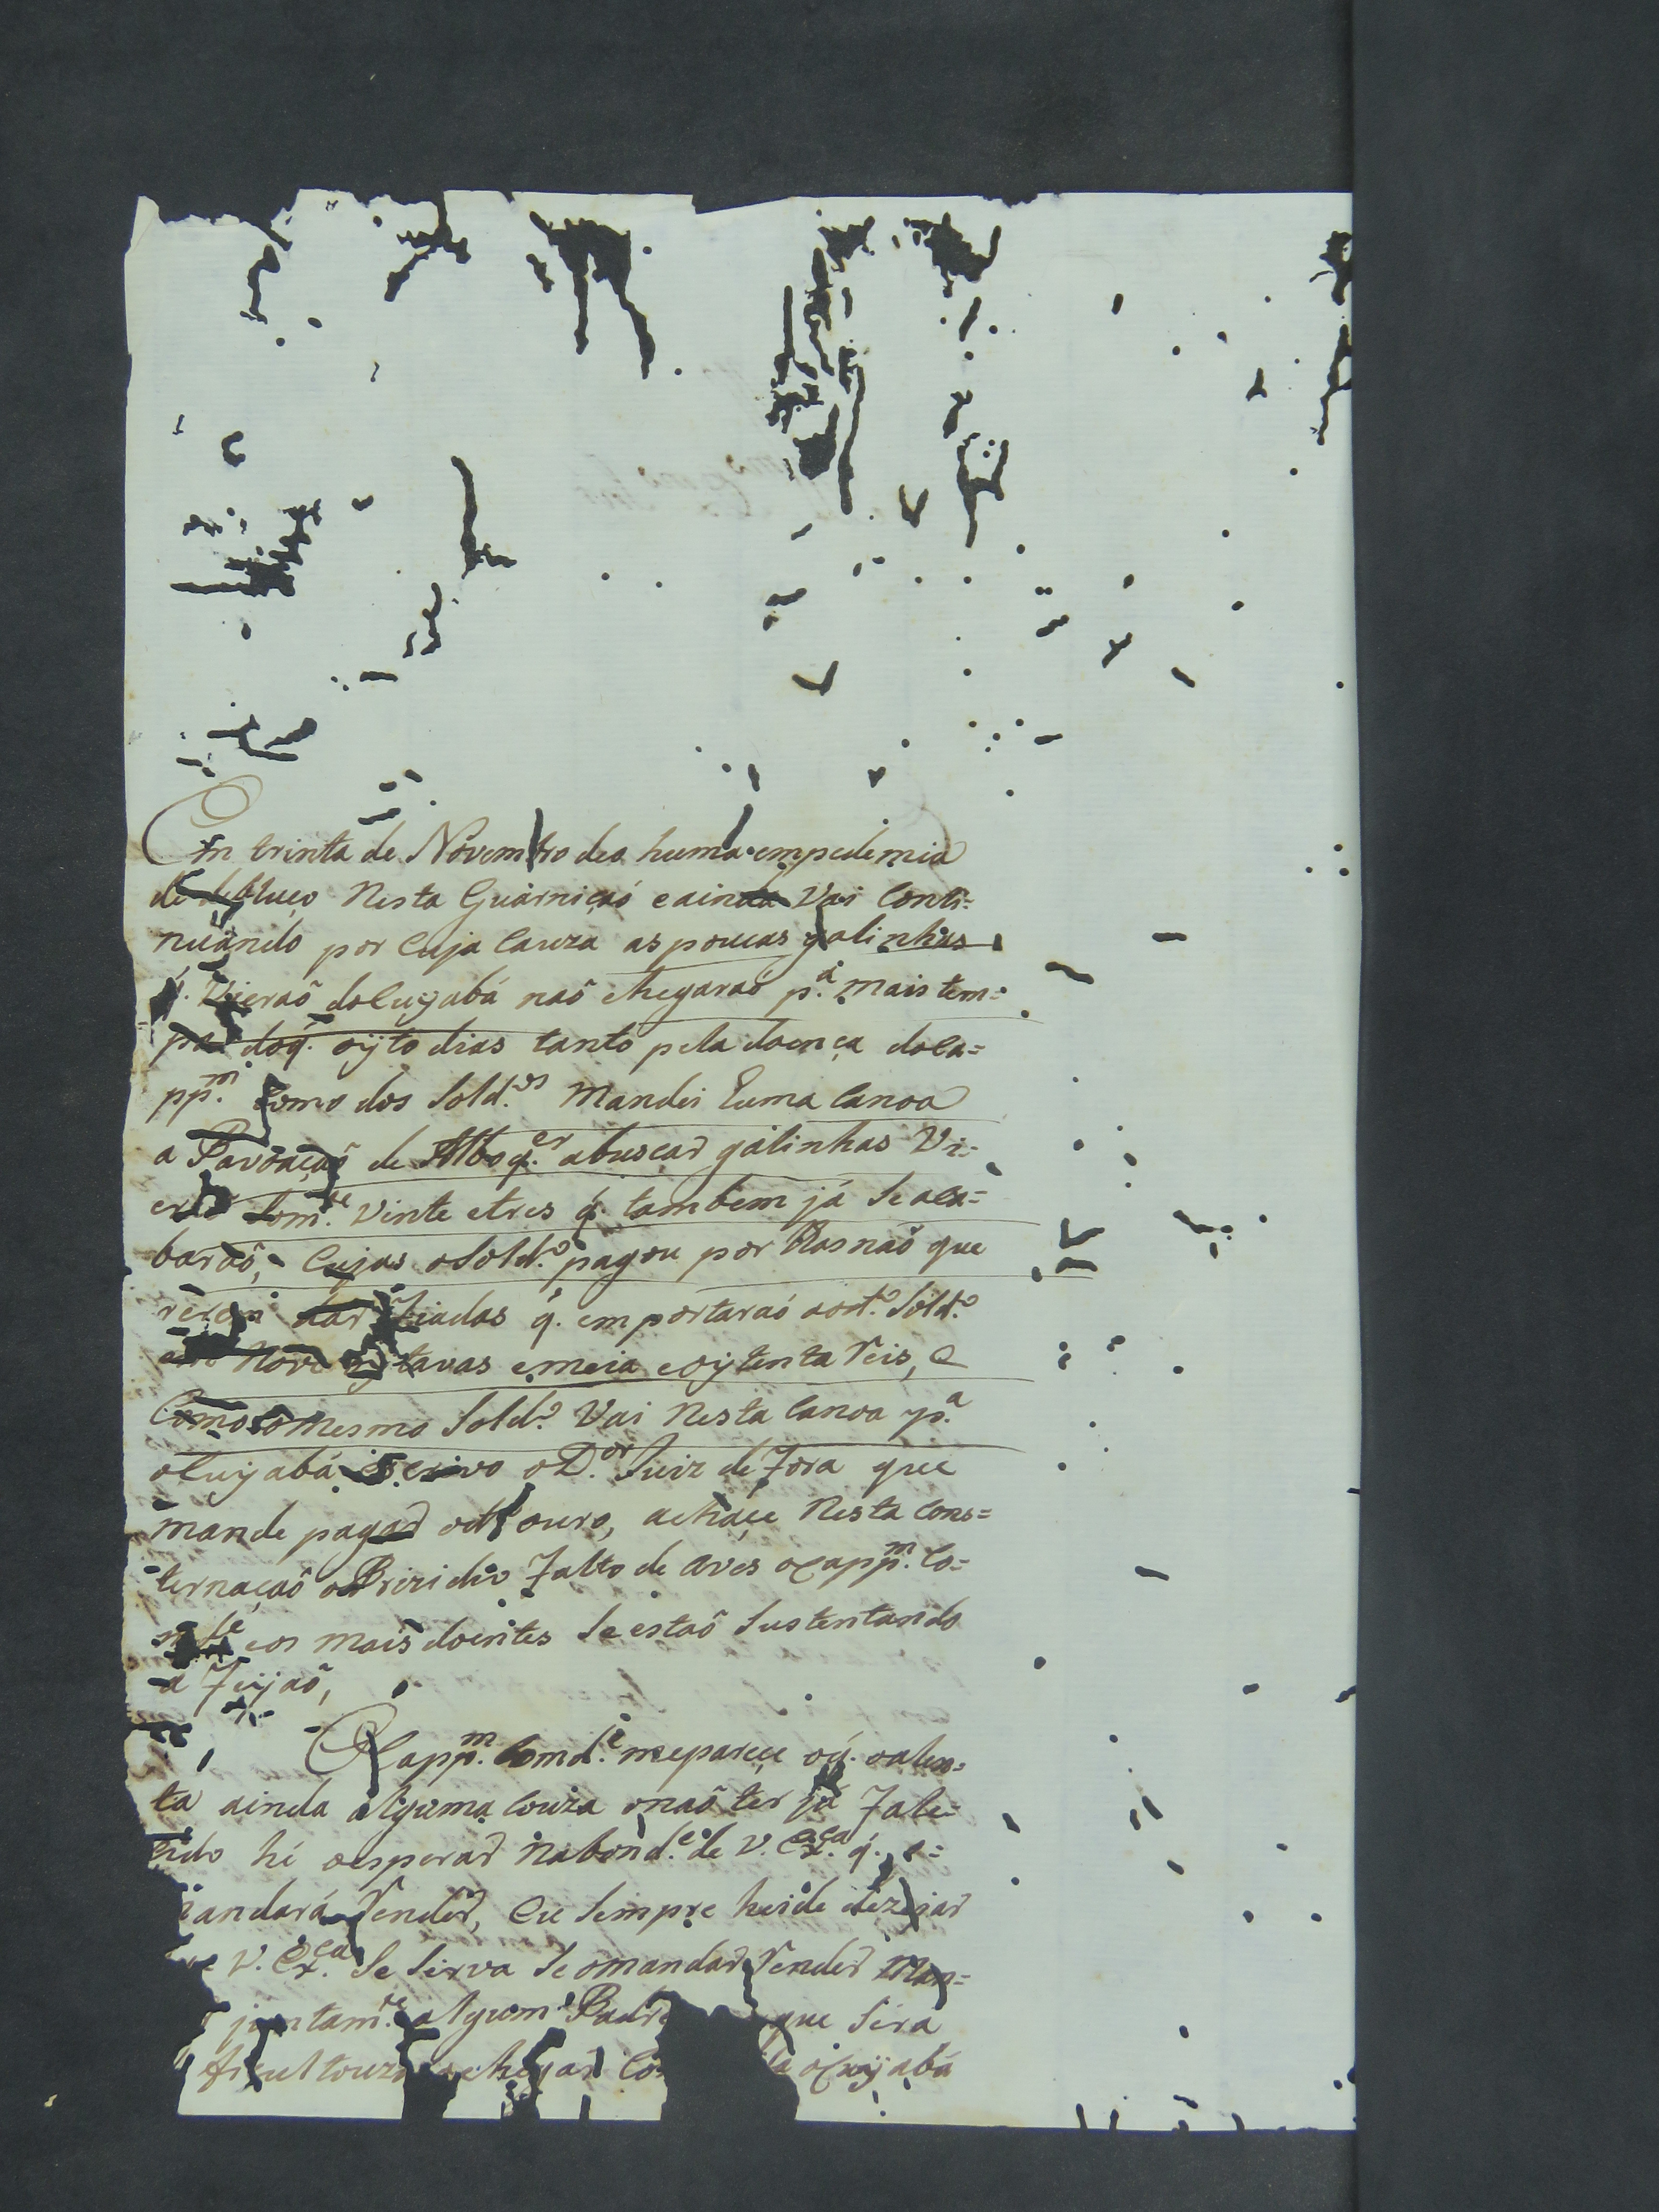 Em trinta de Novembro deo huma empedemia
de defluço Nesta Guarniçaó e ainda Vai Conti=
nuando por Cuja Cauza as poucas galinhas
q. Vieraõ do Cuyabá naõ chegaraó p.ª mais tem=
po doq. oyto dias tanto pela doença do Ca=
pp.m Como dos Sold.os Mandei huma Canoa
a Pavoaçaõ de Alboq.er abuscar galinhas Vi=
eraõ Som.te Vinte e tres q. tambem já Se aca=
baraõ, Cujas o Sold.o pagou por Mas naõ que
rerem dar Fiadas q. emportaraó aod.o Sold.o
em Nove oytavas emeia e oytenta reis, e
Como o mesmo Sold.o Vai Nesta Canoa p.ª
o Cuyabá Escrivo o D.or Juiz de Fora que
mande pagar od.o ouro, achaçe Nesta Cons=
ternaçaõ o Prizidio Falto de aves o Capp.m Co=
m.de e os mais doentes Se estaõ Sustentando
a Feijaõ,
O Capp.m Comd.e me pareçe oq. o alen=
ta ainda alguma Couza o naõ ter já Fale=
cido hé o esperar Na bond.e de V. Ex.ca q. o=
mandará render, Eu Sempre heide dezejar
que V. Ex.ca Se Sirva de omandar render Man=
juntam.te algum Padre que Sera
ficultouzo o chegar o Cuyabá